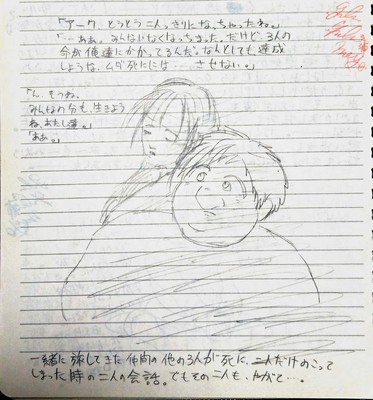 「アーク とうとう二人っきりになっちゃったね。」
「…ああ。みんないなくなっちまった。だけど、3人の
命が俺達にかかってるんだ。なんとしても達成
しような。ムダ死には… させない。」
「ん、もうね、
みんなの分も、生きよう
ね、あたし達。」
「ああ。」
一緒に旅してきた仲間の他の3人が死に、二人だけのこって
しまった時の二人の会話。でもその二人も、やがて…。